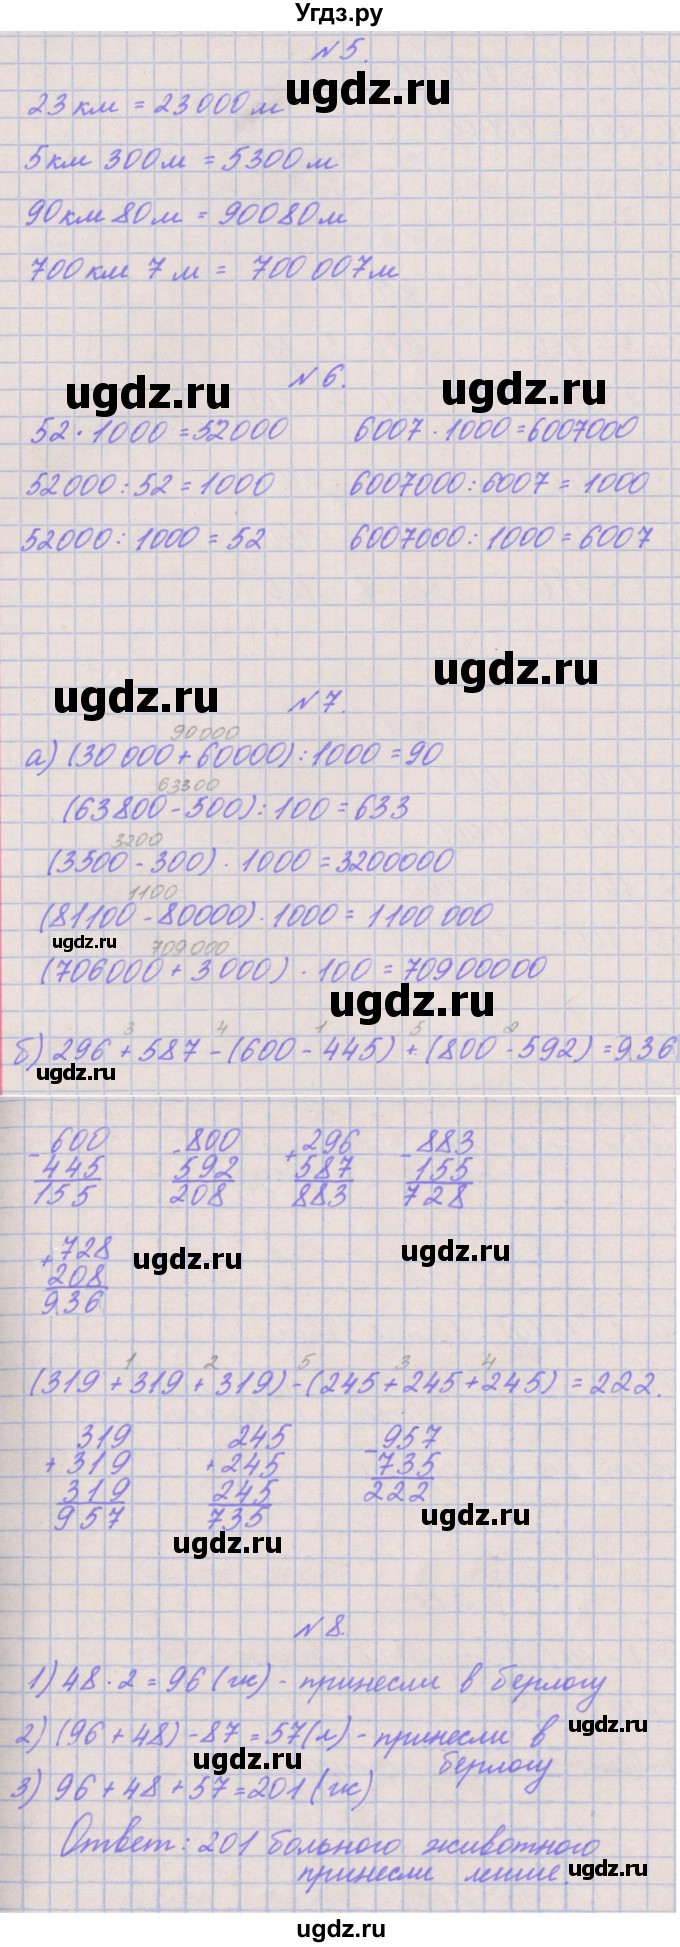 Угдз.ру
№5.
ugdz.ru
23 км = 23000 м
5 км 300 м = 5300 м
90 км 80 м = 90080 м
700 км 7 м = 700 007 м
№6.
ugdz.ru
ugdz.ru
52 · 1000 = 52000
6007 · 1000 = 6007000
52000 : 52 = 1000
6007000 : 6007 = 1000
52000 : 1000 = 52
6007000 : 1000 = 6007
ugdz.ru
ugdz.ru
№7.
90000
а) (30 000 + 60000) : 1000 = 90
63300
(63800 - 500) : 100 = 633
3200
(3500 - 300) · 1000 = 3200000
1100
(81100 - 80000) · 1000 = 1100 000
ugdz.ru
709000
(706000 + 3000) · 100 = 70900000
ugdz.ru
3 4 1 5 2
б) 296 + 587 - (600 - 445) + (800 - 592) = 936
ugdz.ru
- 600 - 800 + 296 - 883
445 592 587 155
155 208 883 728
+ 728
208
936
ugdz.ru
ugdz.ru
1 2 5 3 4
(319 + 319 + 319) - (245 + 245 + 245) = 222.
319 245 - 957
+ 319 + 245 735
319 245 222
957 735
ugdz.ru
ugdz.ru
№8.
1) 48 · 2 = 96 (ж) - принесли в берлогу
2) (96 + 48) - 87 = 57 (л) - принесли в
берлогу
ugdz.ru
ugdz.ru
3) 96 + 48 + 57 = 201 (ж)
Ответ: 201 больного животного
принесли
ugdz.ru
ugdz.ru